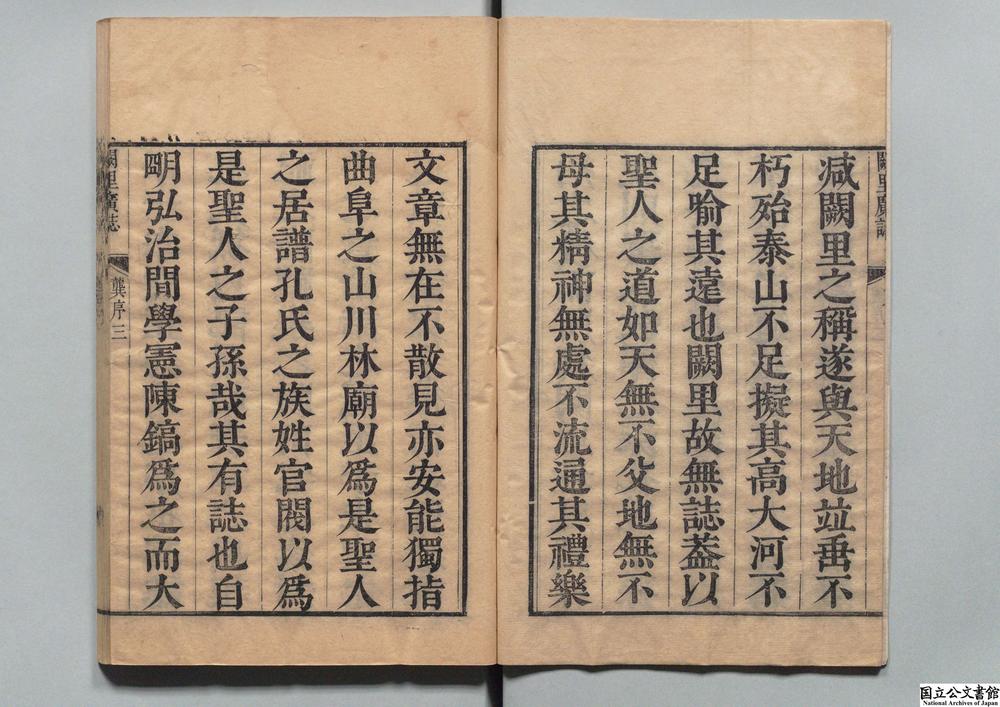 減闕里之稱遂與天地竝垂不
朽殆泰山不足擬其高大河不
足喻其遠也闕里故無誌葢以
聖人之道如天無不父地無不
母其精神無處不流通其禮樂
文章無在不散見亦安能獨指
曲阜之山川林廟以爲是聖人
之居譜孔氏之族姓官閥以爲
是聖人之子孫哉其有誌也自
明弘治間學憲陳鎬爲之而大
闕里廣誌
龔序三
国立公文書館
National Archives of Japan